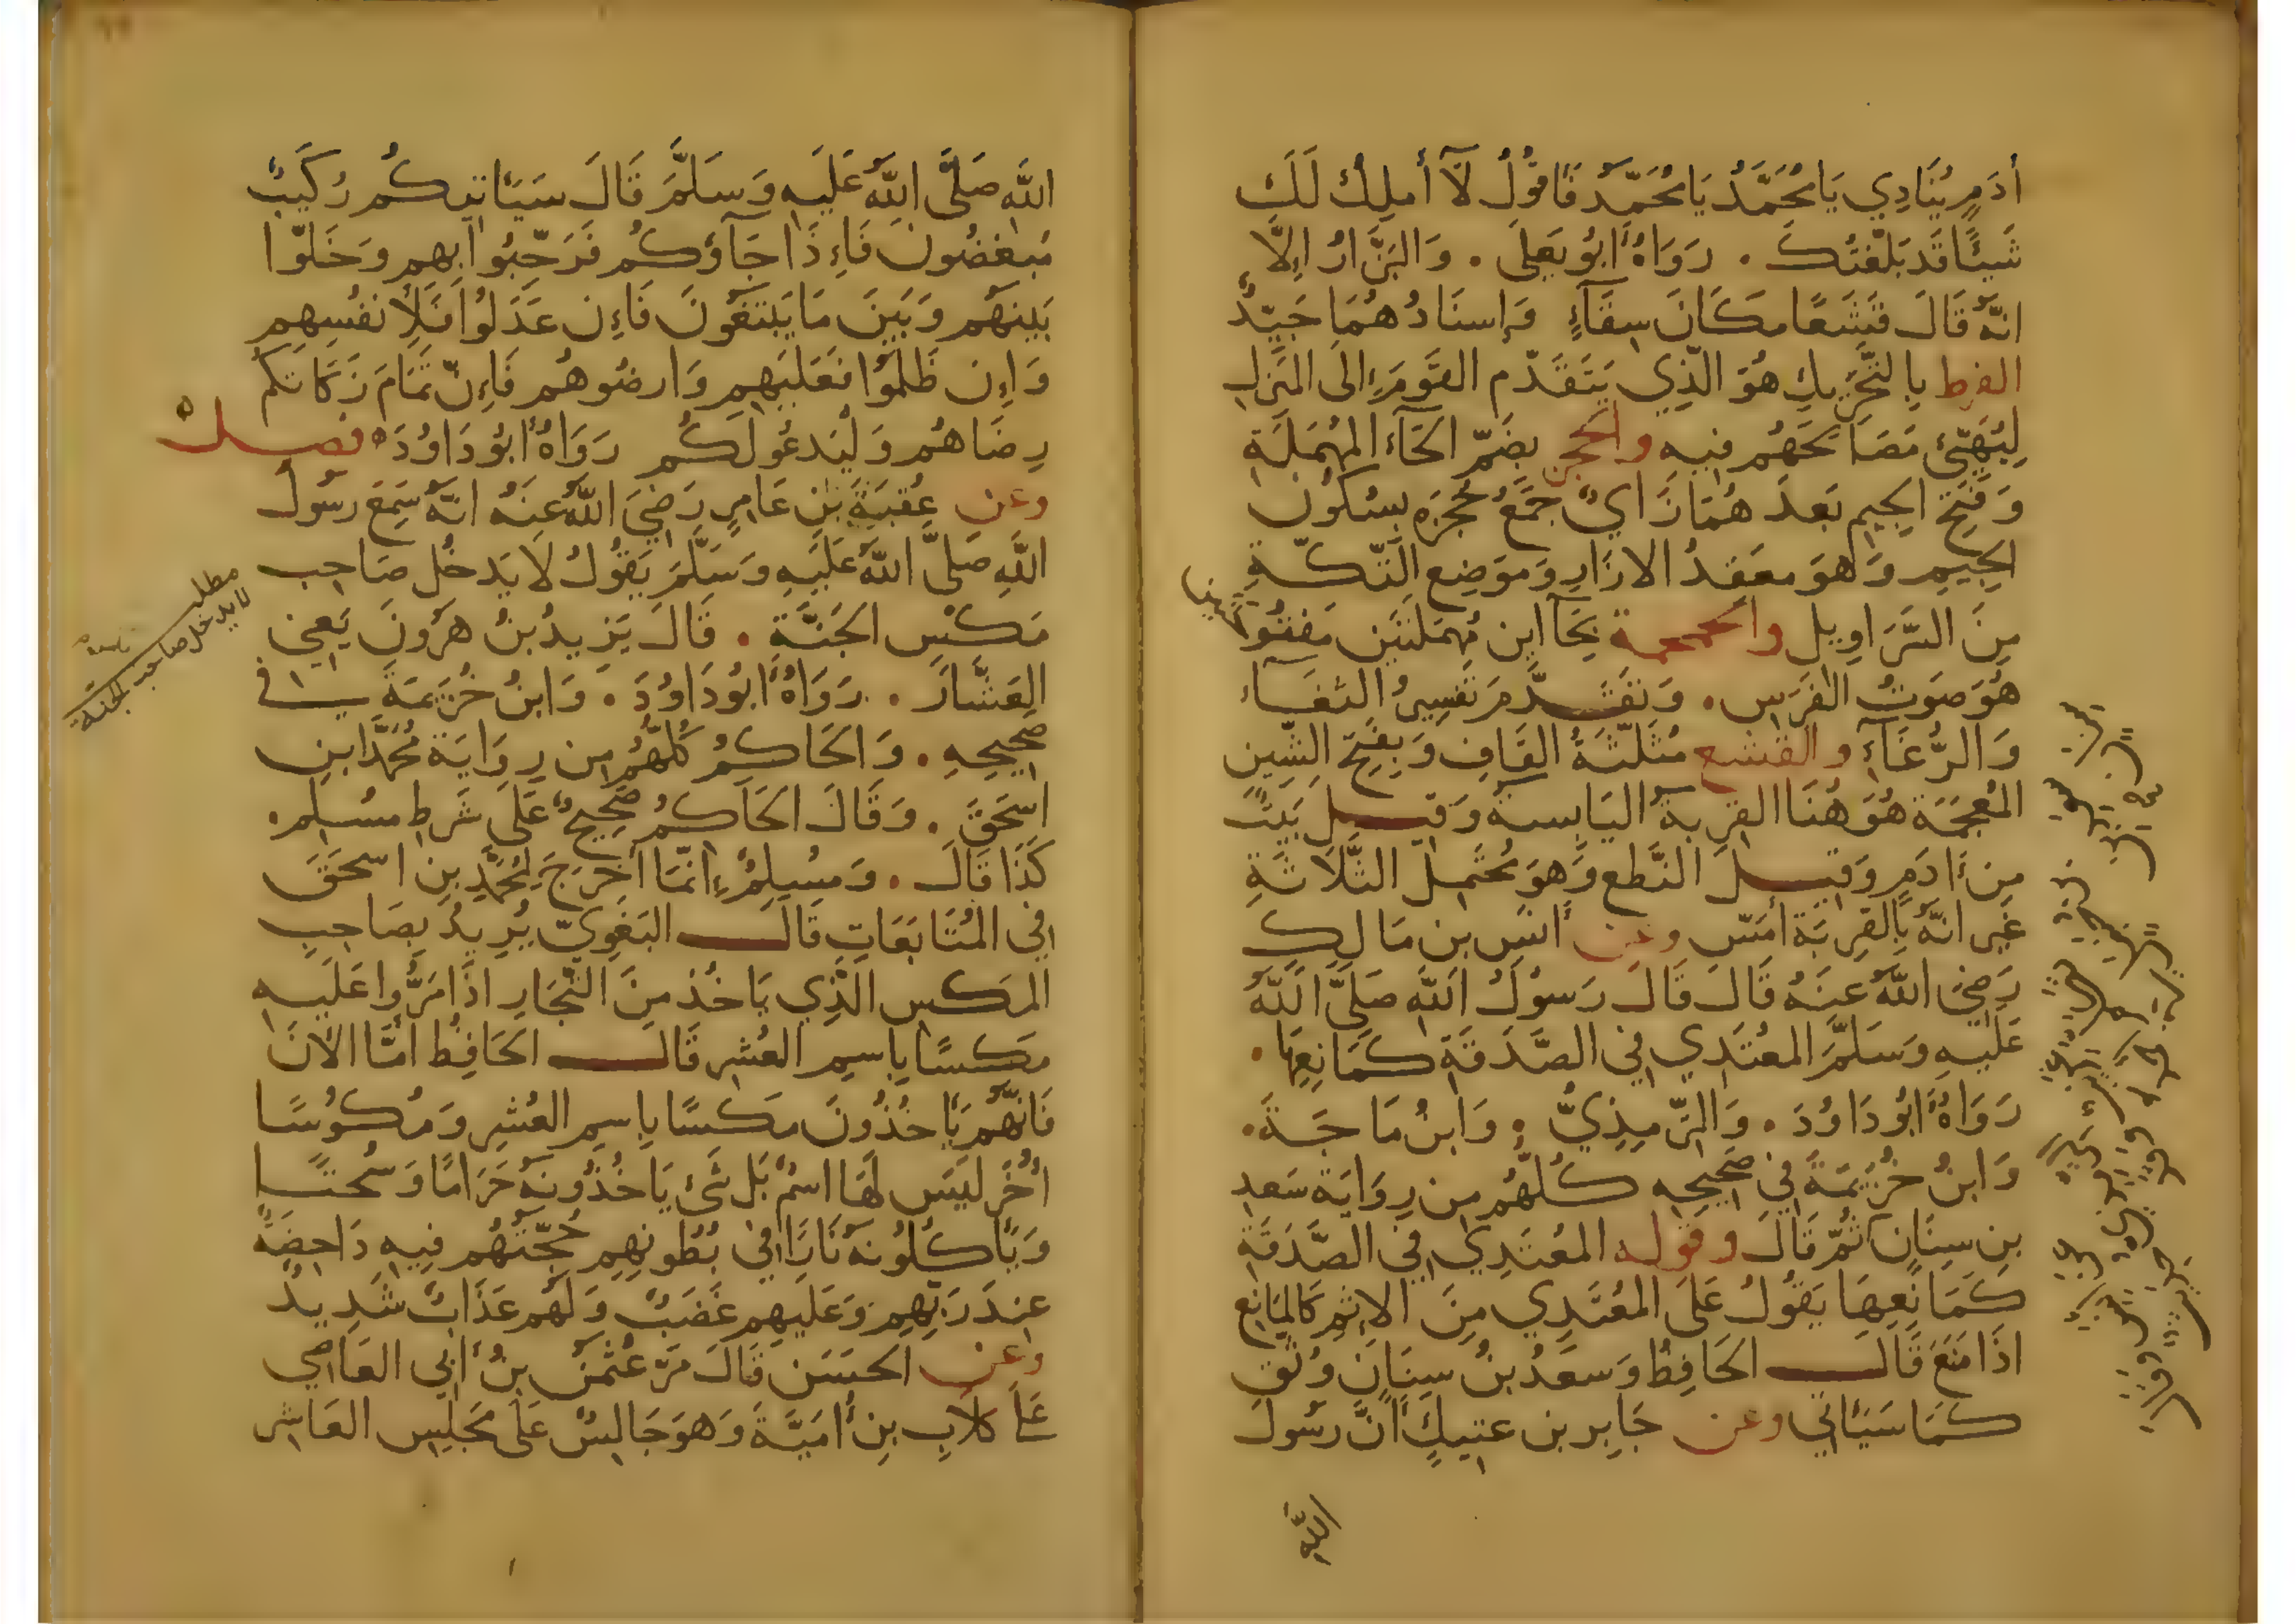 أدَمٍ يُنَادِي يَا مُحَمَّدُ يَا مُحَمَّدُ فَاقُولُ لَآ أملِكُ لَكَ
شَيئًا قَد بَلّغتُكَ . رَوَاهُ أبُو يَعلَى . وَالبَزَّارُ اِلَّا
انّهُ قَالَ قَشَعًا مكَانَ سِقَآءٍ وَإسنَادُهُمَا جَيّدٌ
الفرط بِالتَّحَرِيكِ هُوَ الَّذِي يَتَقَدّم القَومَ إلَى المَنزِلِ
لِيُهَيّئَ مَصَالحَهُم فِيهِ والحجز بِضَمّ الحَآءِ المُهمَلَةِ
وَفَتحِ الجِيمِ بَعدَهُمَا زَايٌ جَمعُ حُجزَه بِسُكُون
الجِيمِ وَهوَ مَعقِدُ الازَارِ وَمَوضِع التّكّةِ
مِنَ السَّرَاوِيل والحمحمة بحَآاين مُهمَلَتَين مَفتُوحَتين
هُوَ صَوتُ الفَرَسِ . وَتَقَدَّمَ تَفسِيرُ الثغَآء
وَالرُّغَآءِ والقشع مُثَلّثَةُ القَافِ وَبِفَتحِ الشِّينِ
المُعجَمَة هُوَ هُنَا القِربَةُ اليَابِسَةُ وَقِيلَ بَيتٌ
مِن أدَمٍ وَقِيلَ النَّطع وَهوَ مُحتَمِل الثَّلَاثَةِ
غَير انّهُ بِالقِربَة أمَسّ وعن أنَسِ بن مَالِكٍ
رَضِيَ اللّهُ عَنهُ قَالَ قَالَ رَسُولُ اللّهِ صَلَّى اللّهُ
عَلَيهِ وَسَلَّمَ المعُتَدِي فِي الصَّدَقَةِ كَمَانِعِهَا .
رَوَاهُ أبُو دَاوُدَ . وَالتّرمِذِيُّ . وَابنُ مَاجَة .
وَابنُ خُزَيمَةَ فِي صَحِيحِهِ كُلّهُم مِن رِوَايَة سَعدِ
بنِ سِنَانٍ ثُمّ قَالَ وقوله المعُتَدِي فِي الصَّدَقَةِ
كَمَانِعِهَا يَقُولُ عَلَى المعُتَدِي مِنَ الاِثمِ كَالمَانِعِ
اذَا مَنَعَ قَالَ الحَافِظُ وَسَعدُ بنُ سِنَانٍ وُثّقَ
كمَا سَيَأتي وعن جَابِر بن عَتِيكٍ أنَّ رَسُولَ
اللّهِ
اللّهِ صَلَّى اللّهُ عَلَيهِ وَسَلَّمَ قَالَ سَيَأتِيكُم رُكَيبٌ
مُبغَضُونَ فَاِذَا جَآؤكُم فَرَحّبُوا بِهِم وَخَلّوا
بَينَهُم وَبَينَ مَا يَبتَغُونَ فَاِن عَدَلُوا فَلِأنفُسِهِم
وَاِن ظَلَمُوا فَعَلَيهِم وَارضُوهُم فَاِنّ تَمَامَ زَكَاتكُم
رِضَاهُم وَليَدعُوا لَكُم رَوَاهُ أبُو دَاوُدَ ه فصل ه
وعن عُقبَةَ بنِ عَامِرٍ رَضِيَ اللّهُ عَنهُ انّهُ سَمِعَ رسُولَ
اللّهِ صَلَّى اللّهُ عَلَيهِ وَسَلَّمَ يَقُولُ لَا يَدخُل صَاحِب
مَكسٍ الجَنَّةَ . قَالَ يَزِيدُ بنُ هرُونَ يَعني
العَشَّارَ . رَوَاهُ أبُو دَاوُدَ . وَابنُ خُزَيمَةَ في
صَحِيحِهِ . وَالحَاكِمُ كُلّهُم مِن رِوَايَة مُحَمَّد ابنِ
اسحَقَ . وَقَالَ الحَاكِمُ صَحِيحٌ عَلَى شَرطِ مسُلِم .
كَذَا قَالَ . وَمسُلِمٌ إنّمَا أخرَجَ لِمُحَمَّدِ بنِ اسحَقَ
فِي المُتَابَعَاتِ قَالَ البَغَوِيّ يُرِيدُ بِصَاحِبِ
المَكسِ الَّذِي يَاخُذ مِنَ التُّجَارِ اذَا مَرُّوا عَلَيهِ
مَكسًا بِاسمِ العُشرِ قَالَ الحَافِظ أمَّا الآنَ
فَانّهُم يَأخُذُونَ مَكسًا بِاسمِ العُشرِ وَمُكُوسًا
أُخَر لَيسَ لَهَا اسمٌ بَل شَيٌ يَاخُذُونهُ حَرَامًا وَسُحتًا
وَيَأكُلُونهُ نَارًا فِي بُطُونِهِم حُجّتُهُم فِيهِ دَاحِضَةٌ
عِندَ رَبّهِم وَعَلَيهِم غَضَبٌ وَلَهُم عَذَابٌ شَدِيدٌ
وعن الحسَن قَالَ مَرّ عُثمنُ بنُ أبي العَاصِي
عَلَى كلَابِ بنِ أمَيَّةَ وَهوَ جَالِسٌ عَلَى مَجلِسِ العَاشِر
مطلب
لا يدخل صاحب
الجنة